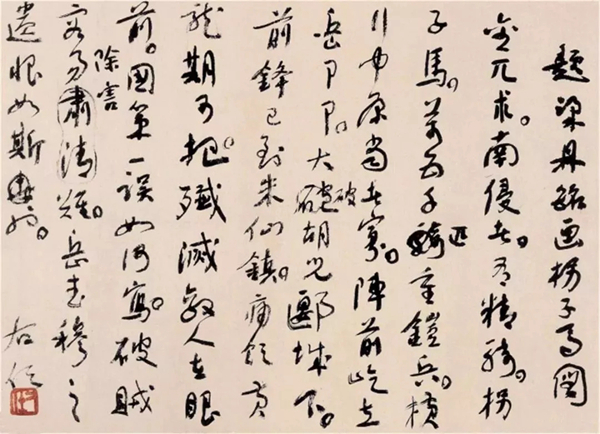 題梁鼎銘画拐子馬圖
金兀朮。南侵者。有精騎。拐
子馬。萬五千騎匹重鎧兵。橫
行中原當者寡。陣前屹立
岳爺爺。大破胡兒郾城下。
前鋒已到朱仙鎮。痛飲黃
龍期可把。殲滅敵人在眼
前。國策一誤如何寫。破賊
除害
容易肅清難。岳武穆之
遺恨如斯也。
右任